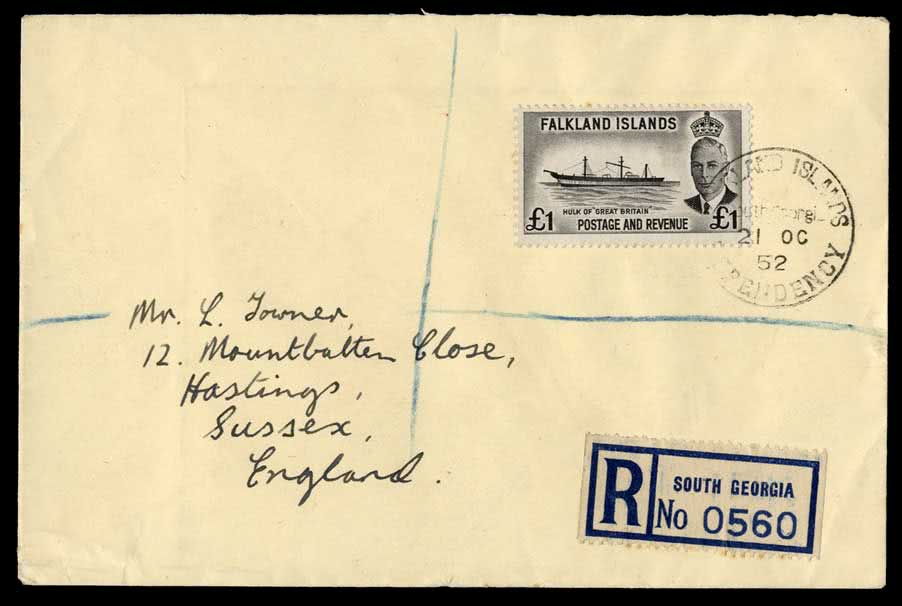 FALKLAND ISLANDS
HULK OF "GREAT BRITAIN"
£1 POSTAGE AND REVENUE £1
LAND ISLANDS
21 OC
52
PENDENCY
Mr. L. Towner,
12. Mountbatten Close,
Hastings,
Sussex,
England.
R SOUTH GEORGIA
No 0560